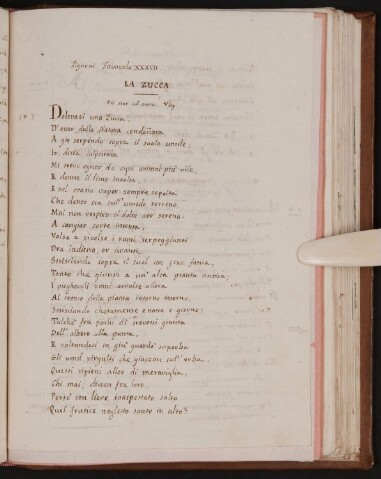 Pignoni Favola XXXVII.
LA ZUCCA
Dolevasi una Zucca,
D'esser dalla Natura condannata
A gir serpendo sopra il suolo umile;
Io, dicea, calpestata
Mi trovo ognor da ogni animal più vile,
E dentro il limo involta,
E nel crasso vapor sempre sepolta
Che denso sta sull'umido terreno,
Mai non respiro il dolce aer sereno.
A cangiar sorte intenta,
Volse e rivolse i rami serpeggianti
Ora indietro, or avanti,
Strisciando sopra il suol con gran fatica,
Tanto che giunse a un'alta pianta antica;
I pieghevoli rami avvolse allora
Al tronco della pianta intorno intorno,
Strisciando chetamente e notte e giorno;
Talchè fra pochi dì trovossi giunta
Dell'albero alla punta,
E voltandosi in giù guardò superba
Gli umil virgulti che giacean sull'erba.
Questi ripieni allor di maraviglia,
Chi mai, dicean fra loro,
Portò con lieve inaspettato salto
Quel frutice negletto tanto in alto?